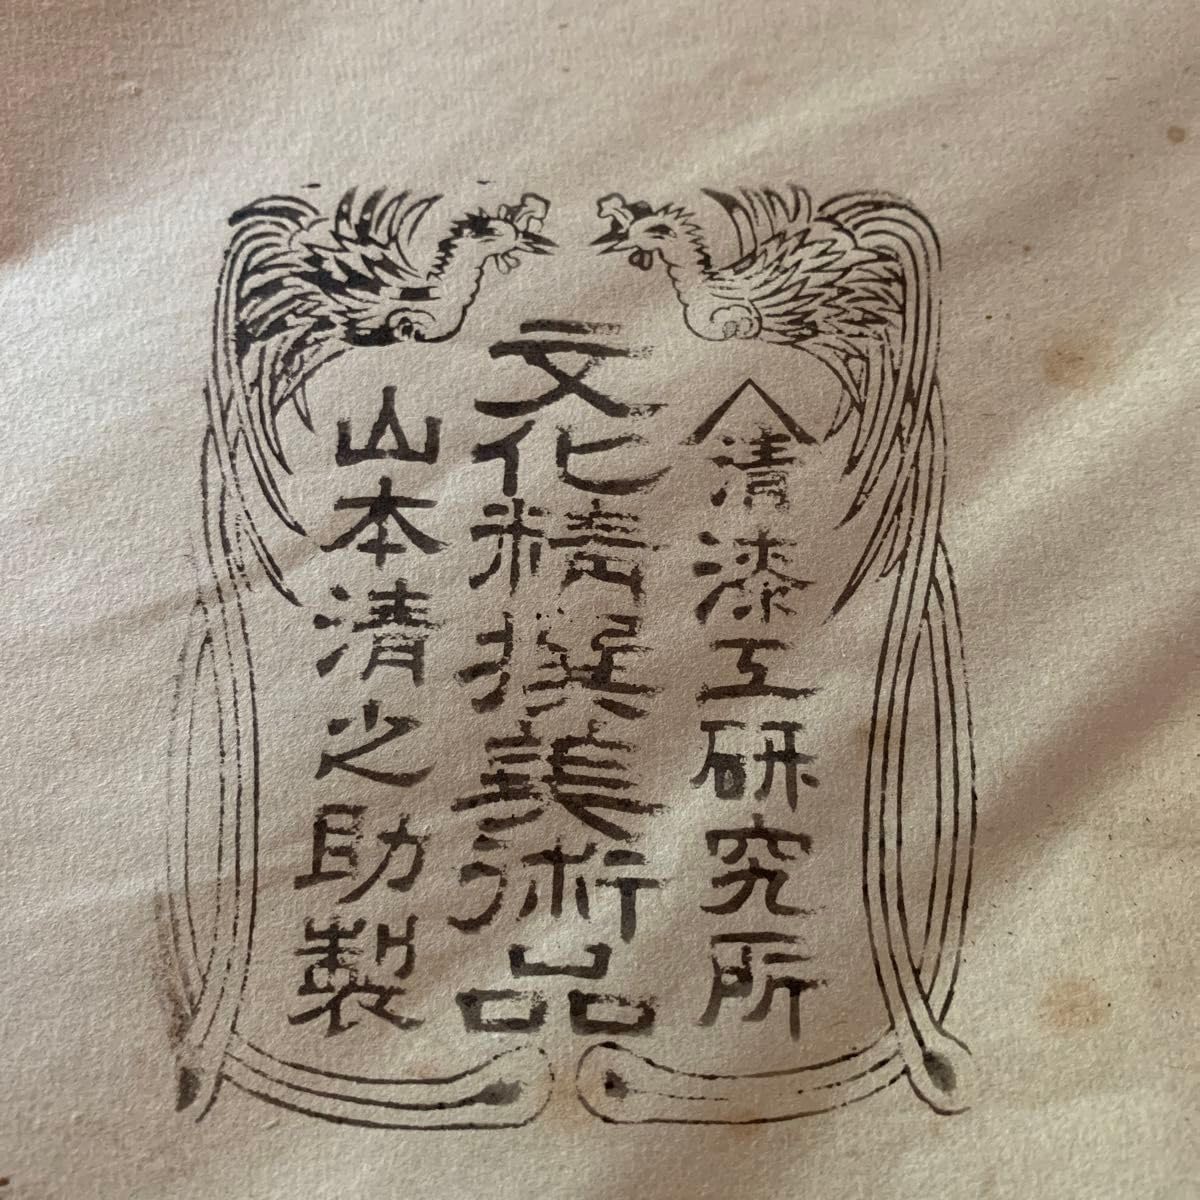 𠆢清漆工研究所
文化精撰美術品
山本清之助製